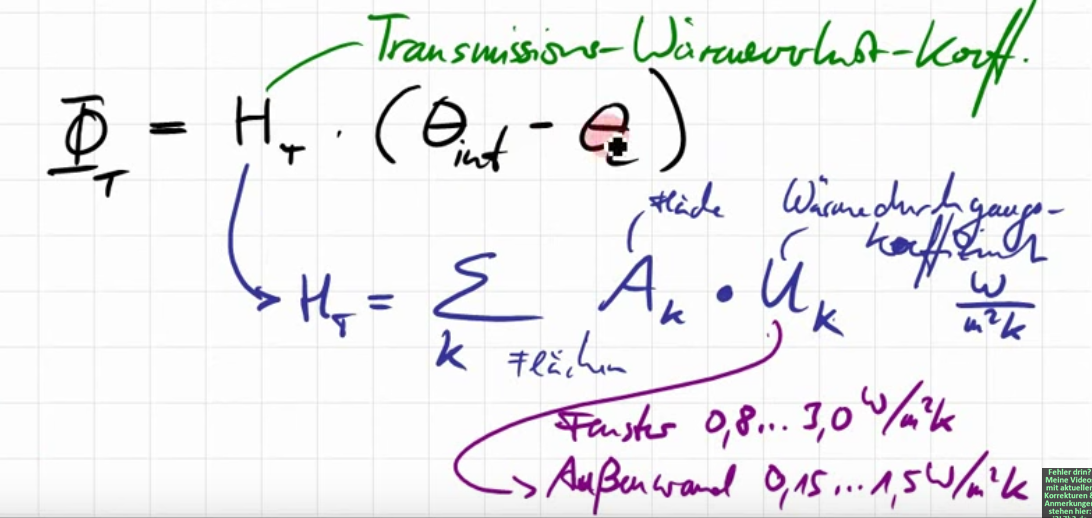 Transmissions-Wärmeverlust-Koeff.
Φ_T = H_T · (θ_int - θ_e)
Fläche Wärmedurchgangs-
koeffizient
H_T = Σ_k A_k · U_k W/m²K
Flächen
Fenster 0,8... 3,0 W/m²K
Außenwand 0,15...1,5 W/m²K
Fehler drin?
Meine Video
mit aktueller
Korrekturen &
Anmerkungen
stehen hier: